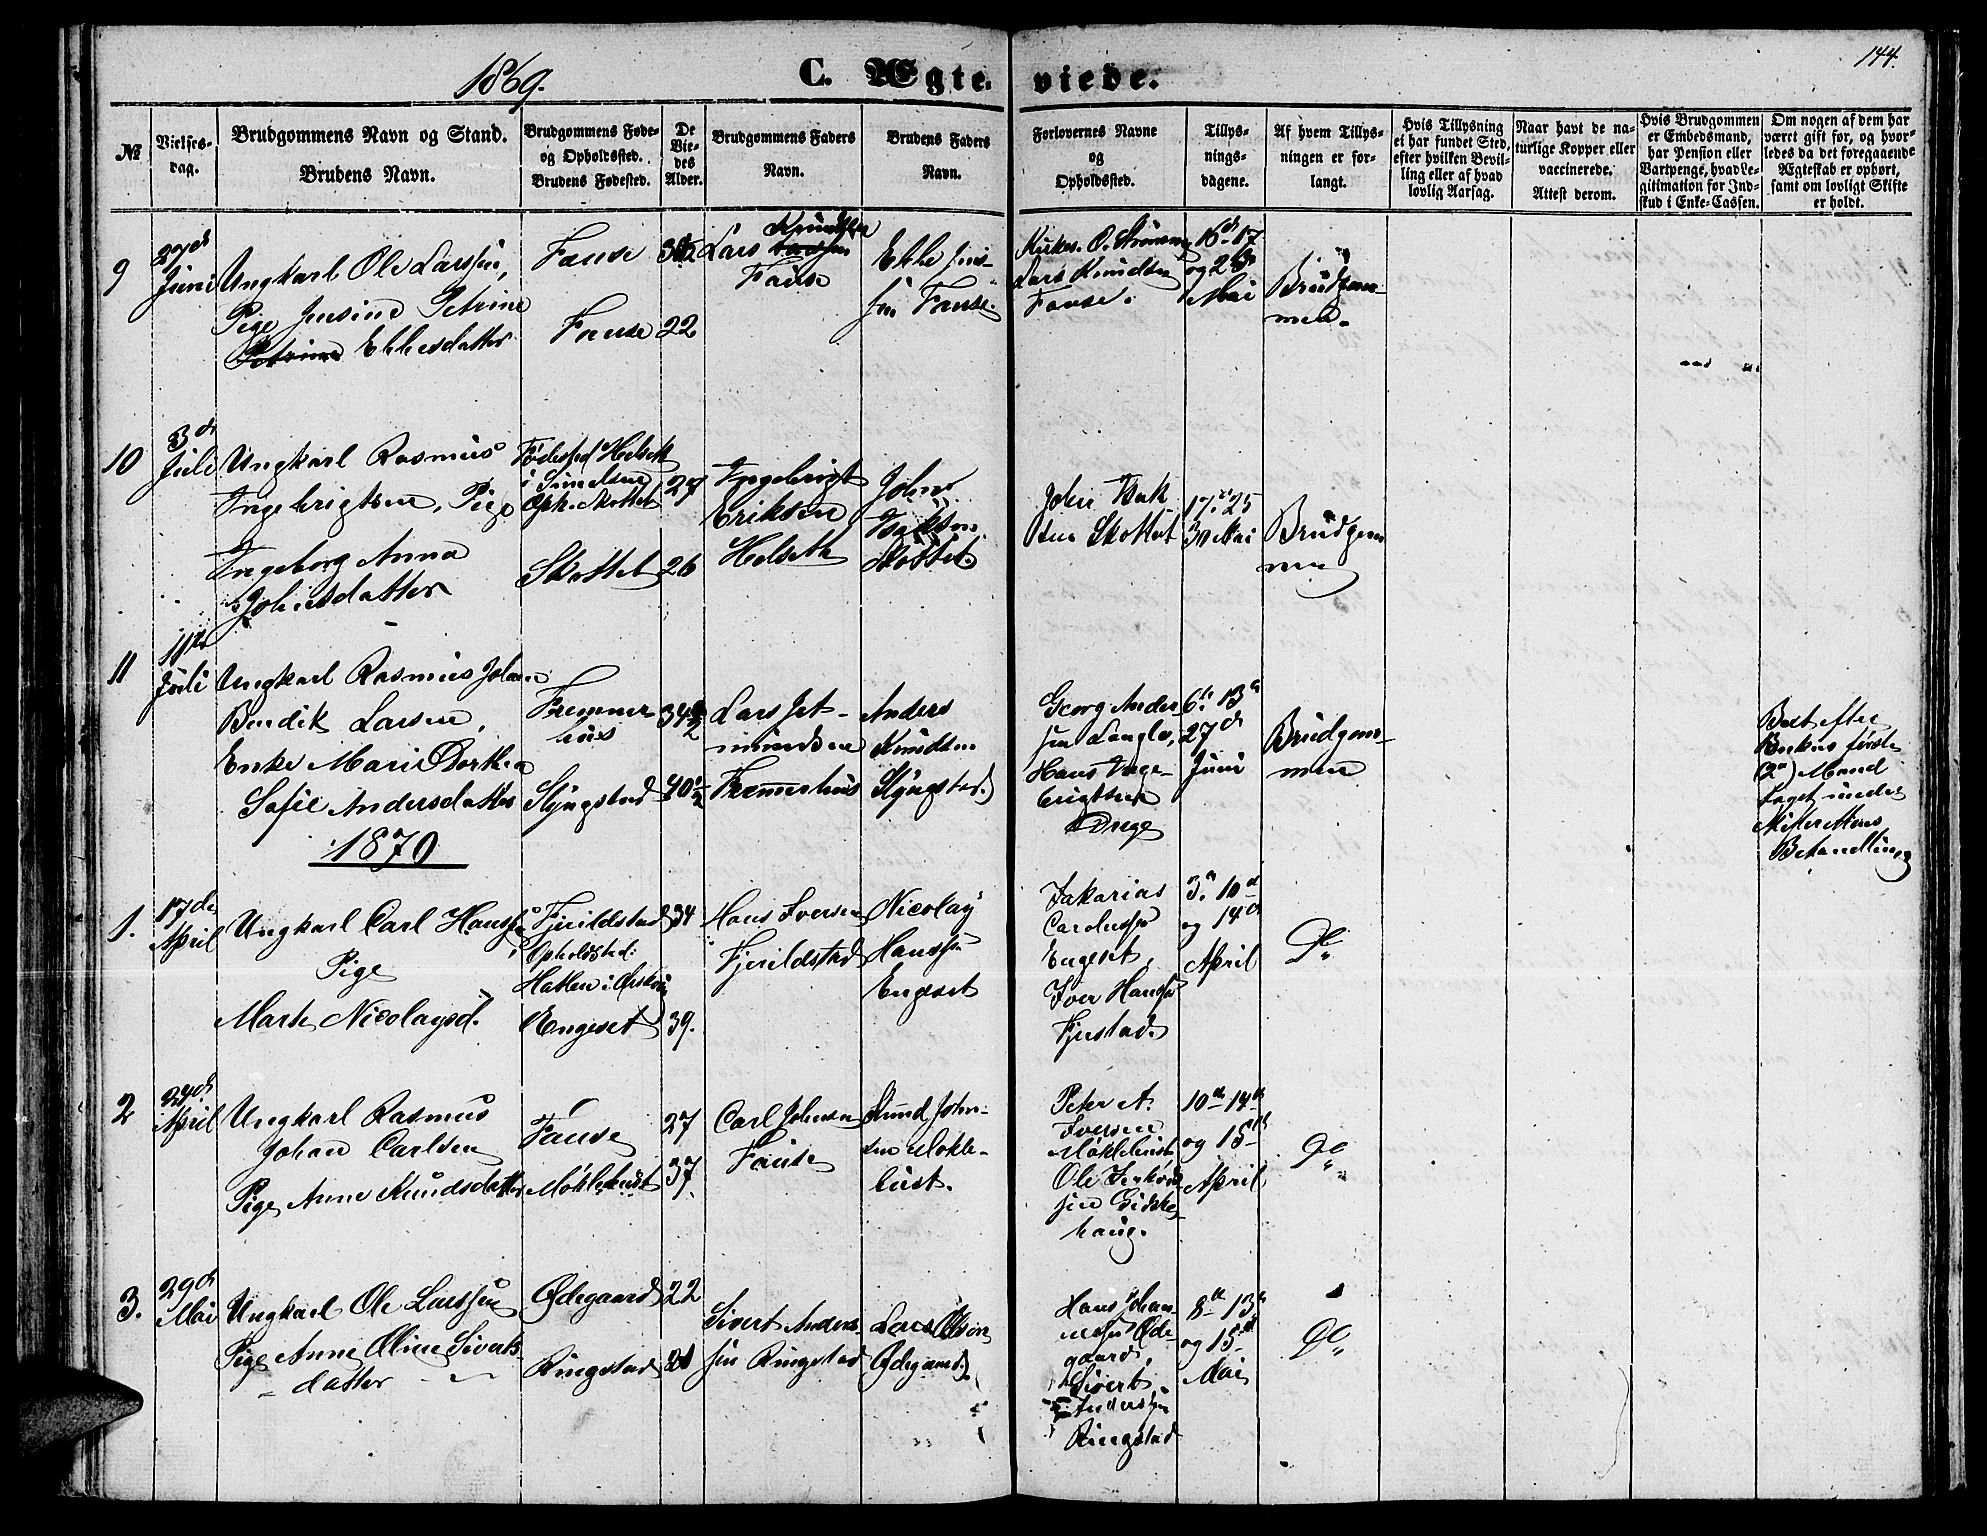 1869.
C. Ægte
viede.
144.
№
Vielses-
dag.
Brudgommens Navn og Stand.
Brudens Navn.
Brudgommens Føde-
og Opholdssted.
Brudens Fødested.
De
Vie-
des
Alder.
Brudgommens Faders
Navn.
Brudens Faders
Navn.
Forlovernes Navne
og
Opholdssted.
Tillys-
nings-
dagene.
Af hvem Tillys-
ningen er for-
langt.
Hvis Tillysning
ei har fundet Sted,
efter hvilken Bevil-
ling eller af hvad
lovlig Aarsag.
Naar havt de na-
turlige Kopper eller
vaccinerede.
Attest derom.
Hvis Brudgommen
er Embedsmand,
har Pension eller
Vartpenge, hvad Le-
gitimation for Ind-
skud i Enke-Cassen.
Om nogen af dem har
været gift før, og hvor-
ledes da det foregaaende
Ægteskab er ophørt,
samt om lovligt Skifte
er holdt.
9
27d
Juni
Ungkarl Ole Larssen,
Pige Jensine Petrine
Petrine Ebbesdatter
Fause
Fause
22
Lars Knudsen
Fause
Ebbe Jens-
sen Fause
Kirkes. O. Strømme
Lars Knudsen
Fause.
16d 17
og
Mai
Brudgom-
men.
10
3d
Juli
Ungkarl Rasmus
Ingebrigtsen, Pige
Ingeborg Anna
Johnsdatter
Fødested Helseth
Oph. Skottet
Skottet
27
26
Ingebrigt
Eriksen
Helseth
John
Isaksen
Skottet.
John Isak
sen Skottet
17. 25
30 Mai
Brudgom
men
11
11te
Juli
Ungkarl Rasmus Johan
Bendik Larsen,
Enke Marie Dorthea
Sofie Andersdatter
Fremmer-
huus
Slyngstad
34½
40½
Lars Jet-
mundsen
Fremmerhuus
Anders
Knudsen
Slyngstad.
Georg Ander-
sen Langlo,
Hans Inge-
brigtsen
Drege
6t 13d
27d
Juni
Brudgom-
men
Best efter
Enkens første
(2n) Mand
taget under
Skifterettens
Behandling
1870
1.
17de
April
Ungkarl Carl Hanssen
Pige
Marte Nicolaysd.
Fjeildstad
Opholdsted:
Hatlen i Ørskou
Engeset
34
39.
Hans Iversen
Fjeildstad
Nicolay
Hanssen
Engeset
Zakarias
Engeset,
Iver Hanssen
Fjelstad
3d 10d
og 14d
April
Do
2
24d
April
Ungkarl Rasmus
Johan Carlsen
Pige Anne Knudsdatter
Fause
Møklebust
27
37.
Carl Johnsen
Fause
Knud John-
sen Mokle-
bust.
Peter A.
Iversen
Møklebust
Ole
sen Gidske
haug.
10de 14de
og 15de
April
Do
3.
29d
Mai
Ungkarl Ole Larssen
Pige Anne Oline Siverts
datter
Ødegaard
Ringstad
22
21
Sivert Anders-
sen Ringstad
Lars Olsen
Ødegaard
Hans Johan-
nessen Øde-
gaard,
Sivert
Anderssen
Ringstad
8de 13d
og 15de
Mai
Do